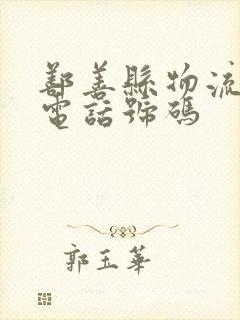 鄯善縣物流
電話號碼
郭玉華